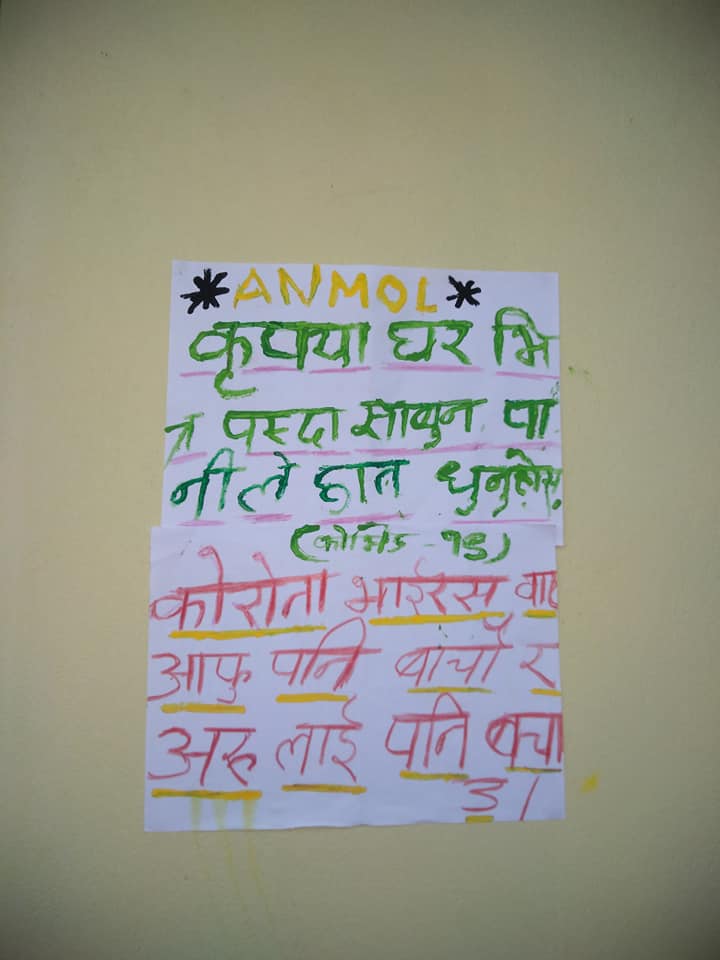 *ANMOL*
कृपया घर भि
त्र पस्दा साबुन पा
नीले हात धुनुहोस्
(कोभिड - १९)
कोरोना भाईरस बाट
आफु पनि बाचौँ र
अरु लाई पनि बचा
उ।